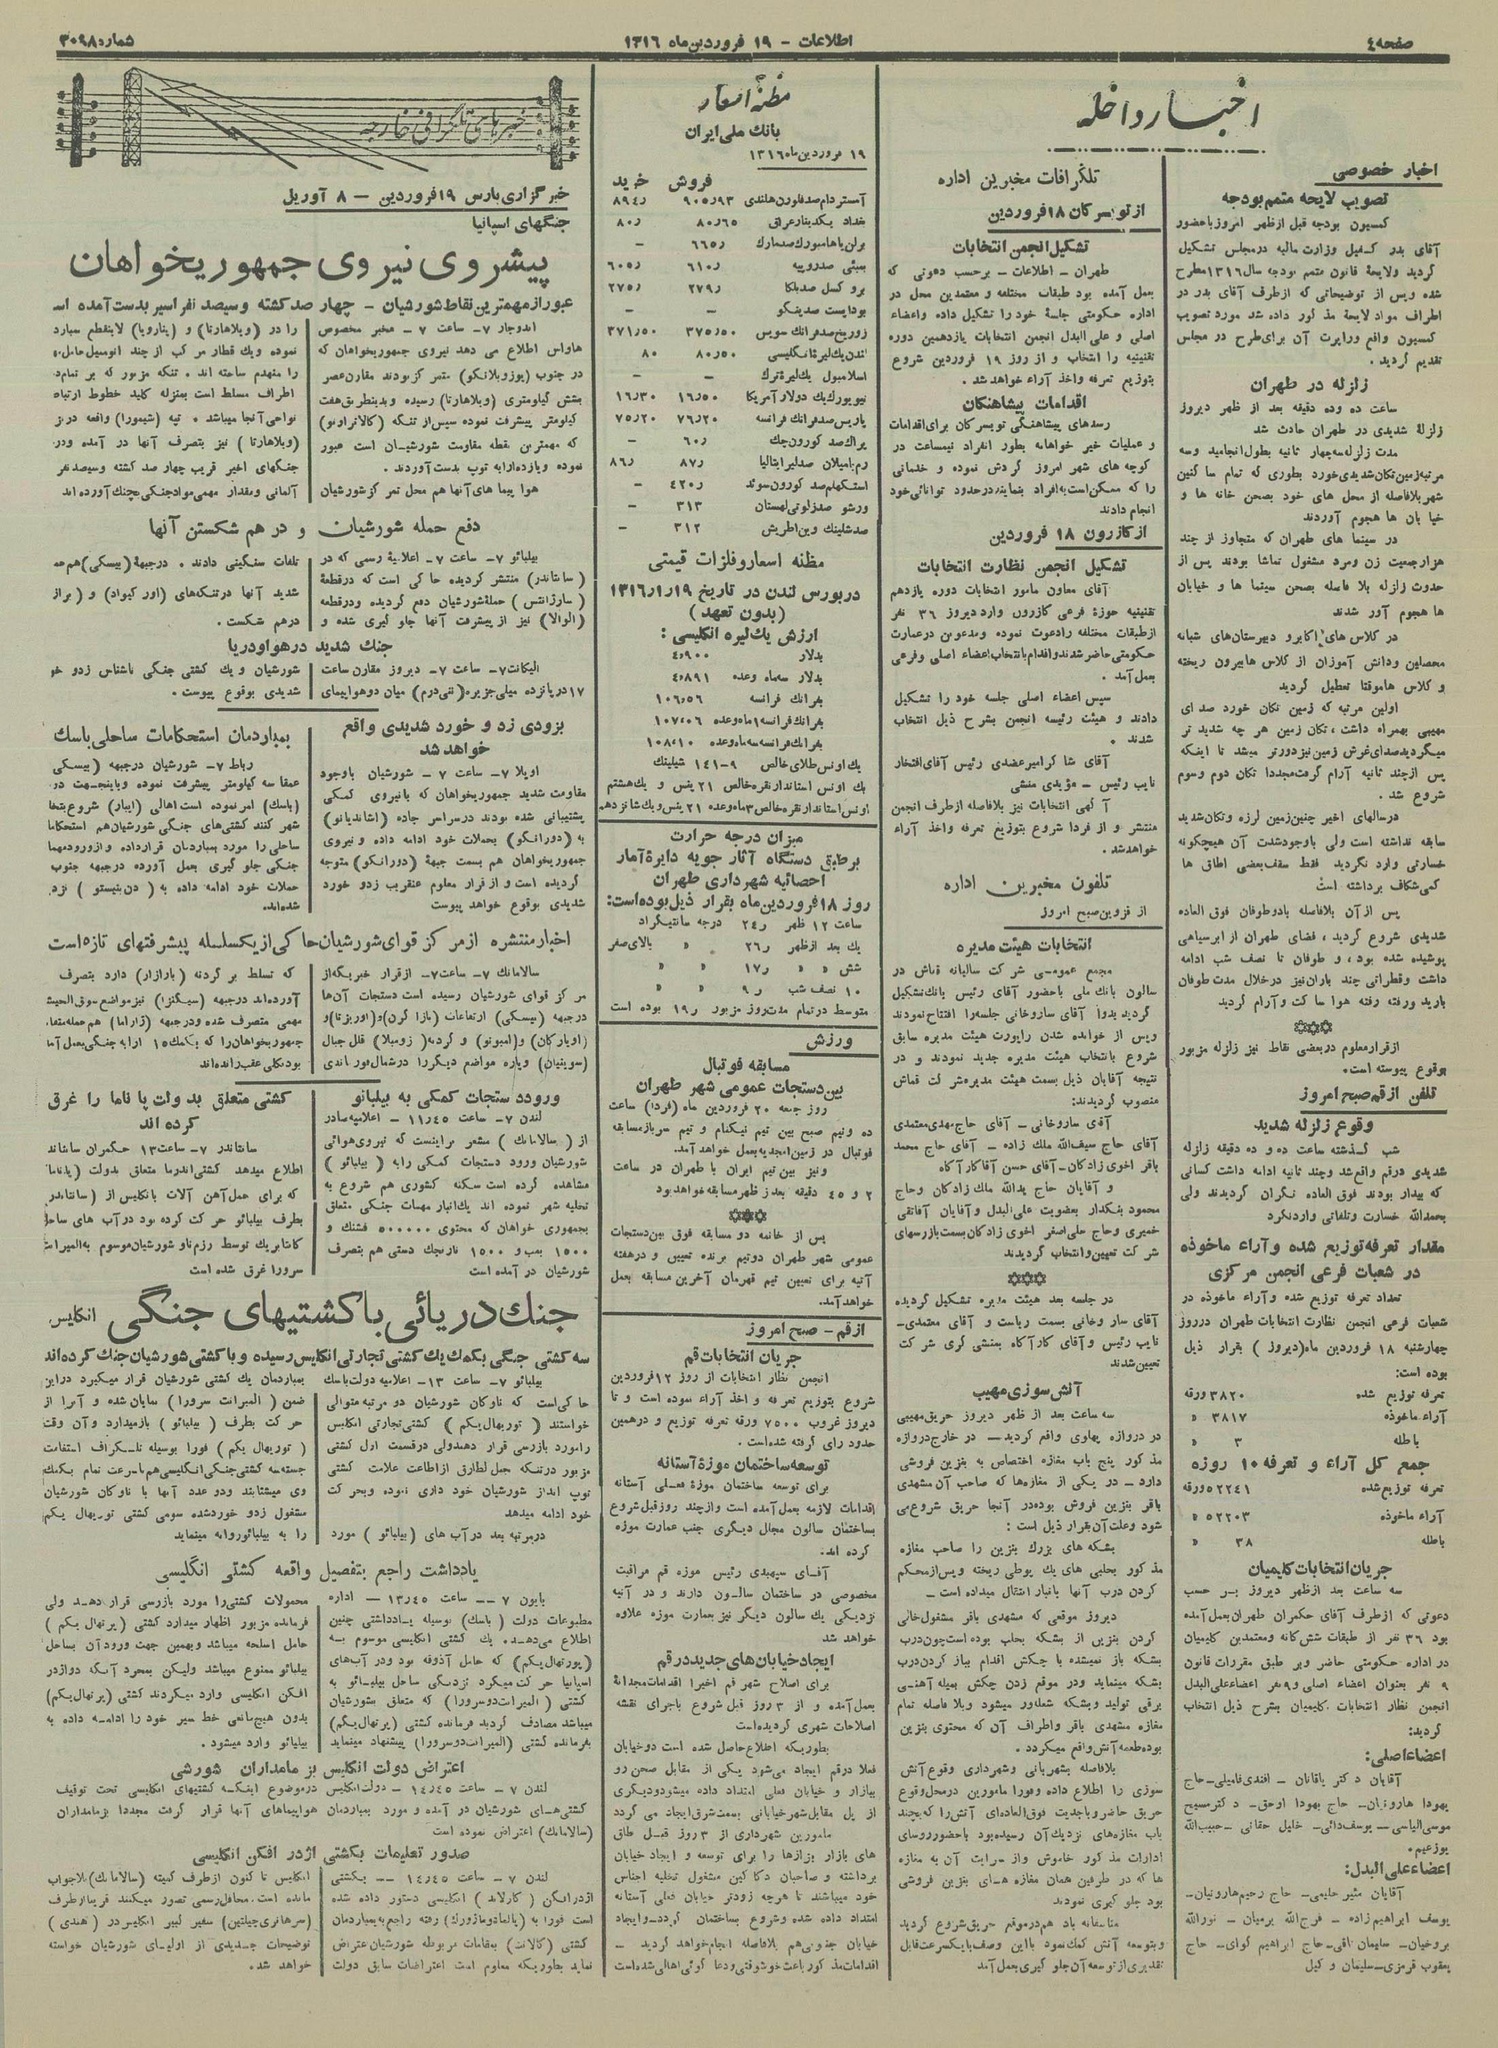 صفحه ٤
اطلاعات - ١٩ فروردین ماه ١٣١٦
شماره ٣٠٩٨
اخبار داخله
اخبار خصوصی
تصویب لایحه متمم بودجه
کمسیون بودجه قبل از ظهر امروز با حضور
آقای بدر کفیل وزارت مالیه در مجلس تشکیل
گردید ولایحهٔ قانون متمم بودجه سال ١٣١٦ مطرح
شده وپس از توضیحاتی که از طرف آقای بدر در
اطراف مواد لایحهٔ مذکور داده شد مورد تصویب
کمسیون واقع وراپرت آن برای طرح در مجلس
تقدیم گردید.
زلزله در طهران
ساعت ده وده دقیقه بعد از ظهر دیروز
زلزلهٔ شدیدی در طهران حادث شد
مدت زلزله سه چهار ثانیه بطول انجامید وسه
مرتبه زمین تکان شدیدی خورد بطوری که تمام ساکنین
شهر بلافاصله از محل های خود بصحن خانه ها و
خیابان ها هجوم آوردند
در سینما های طهران که متجاوز از چند
هزار جمعیت زن ومرد مشغول تماشا بودند پس از
حدوث زلزله بلا فاصله بصحن سینما ها و خیابان
ها هجوم آور شدند
در کلاس های اکابر و دبیرستان های شبانه
محصلین ودانش آموزان از کلاس ها بیرون ریخته
و کلاس ها موقتا تعطیل گردید
اولین مرتبه که زمین تکان خورد صدای
مهیبی بهمراه داشت، تکان زمین هر چه شدید تر
میگردید صدای غرش زمین نیز دورتر میشد تا اینکه
پس از چند ثانیه آرام گرفت مجددا تکان دوم وسوم
شروع شد.
در سالهای اخیر چنین زمین لرزه وتکان شدید
سابقه نداشته است ولی باوجود شدت آن هیچگونه
خسارتی وارد نگردید فقط سقف بعضی اطاق ها
کمی شکاف برداشته است
پس از آن بلافاصله باد وطوفان فوق العاده
شدیدی شروع گردید، فضای طهران از ابر سیاهی
پوشیده شده بود، و طوفان تا نصف شب ادامه
داشت وقطراتی چند باران نیز در خلال مدت طوفان
بارید ورفته رفته هوا ساکت وآرام گردید
از قرار معلوم در بعضی نقاط نیز زلزله مزبور
بوقوع پیوسته است.
تلفن از قم صبح امروز
وقوع زلزله شدید
شب گذشته ساعت ده و ده دقیقه زلزله
شدیدی در قم واقع شد وچند ثانیه ادامه داشت کسانی
که بیدار بودند فوق العاده نگران گردیدند ولی
بحمدالله خسارت وتلفاتی وارد نکرد
مقدار تعرفه توزیع شده وآراء ماخوذه
در شعبات فرعی انجمن مرکزی
تعداد تعرفه توزیع شده وآراء ماخوذه در
شعبات فرعی انجمن نظارت انتخابات طهران در روز
چهارشنبه ١٨ فروردین ماه (دیروز) بقرار ذیل
بوده است:
تعرفه توزیع شده ٣٨٢٠ ورقه
آراء ماخوذه ٣٨١٧ «
باطله ٣ «
جمع کل آراء و تعرفه ١٠ روزه
تعرفه توزیع شده ٥٢٢٤١ ورقه
آراء ماخوذه ٥٢٢٠٣ «
باطله ٣٨ «
جریان انتخابات کلیمیان
سه ساعت بعد از ظهر دیروز بر حسب
دعوتی که از طرف آقای حکمران طهران بعمل آمده
بود ٣٦ نفر از طبقات شش گانه ومعتمدین کلیمیان
در اداره حکومتی حاضر وبر طبق مقررات قانون
٩ نفر بعنوان اعضاء اصلی و٩ نفر اعضاء علی البدل
انجمن نظار انتخابات کلیمیان بشرح ذیل انتخاب
گردید:
اعضاء اصلی:
آقایان دکتر یاقانان - افندی فامیلی - حاج
یهودا هارونیان - حاج یهودا اوحق - دکتر مسیح
موسی الیاسی - یوسف دائی - خلیل حقانی - حبیب الله
یوزعیم.
اعضاء علی البدل:
آقایان مثیر حلیمی - حاج رحیم هارونیان -
یوسف ابراهیم زاده - فرج الله برمیان - نورالله
بروخیان - سلیمان نافی - حاج ابراهیم گوای - حاج
یعقوب قرمزی - سلیمان وکیل
تلگرافات مخبرین اداره
از تویسرکان ١٨ فروردین
تشکیل انجمن انتخابات
طهران - اطلاعات - بر حسب دعوتی که
بعمل آمده بود طبقات مختلفه و معتمدین محل در
اداره حکومتی جلسهٔ خود را تشکیل داده واعضاء
اصلی و علی البدل انجمن انتخابات یازدهمین دوره
تقنینیه را انتخاب و از روز ١٩ فروردین شروع
بتوزیع تعرفه واخذ آراء خواهد شد.
اقدامات پیشاهنگان
رسدهای پیشاهنگی تویسرکان برای اقدامات
و عملیات خیر خواهانه بطور انفراد نیمساعت در
کوچه های شهر امروز گردش نموده و خدماتی
را که ممکن است به افراد بنمایند در حدود توانائی خود
انجام دادند
از کازرون ١٨ فروردین
تشکیل انجمن نظارت انتخابات
آقای معاون مامور انتخابات دوره یازدهم
تقنینیه حوزهٔ فرعی کازرون وارد دیروز ٣٦ نفر
از طبقات مختلفه را دعوت نموده و مدعوین در عمارت
حکومتی حاضر شدند واقدام بانتخاب اعضاء اصلی وفرعی
بعمل آمد.
سپس اعضاء اصلی جلسه خود را تشکیل
دادند و هیئت رئیسه انجمن بشرح ذیل انتخاب
شدند.
آقای شاکر امیر عضدی رئیس آقای افتخار
نایب رئیس - مؤیدی منشی
آگهی انتخابات نیز بلافاصله از طرف انجمن
منتشر و از فردا شروع بتوزیع تعرفه واخذ آراء
خواهد شد.
تلفون مخبرین اداره
از قزوین صبح امروز
انتخابات هیئت مدیره
مجمع عمومی شرکت سالیانه قماش در
سالون بانک ملی با حضور آقای رئیس بانک تشکیل
گردید بدوا آقای ساروخانی جلسه را افتتاح نمودند
وپس از خوانده شدن راپورت هیئت مدیره سابق
شروع بانتخاب هیئت مدیره جدید نمودند و در
نتیجه آقایان ذیل بسمت هیئت مدیره شرکت قماش
منصوب گردیدند:
آقای ساروخانی - آقای حاج مهدی معتمدی
آقای حاج سیف الله ملک زاده - آقای حاج محمد
باقر اخوی زادکان - آقای حسن آقا کارآگاه
و آقایان حاج یدالله ملک زادکان وحاج
محمود بنکدار بعضویت علی البدل و آقایان آفاقی
خمیری وحاج علی اصغر اخوی زادکان بسمت بازرسهای
شرکت تعیین وانتخاب گردیدند
در جلسه بعد هیئت مدیره تشکیل گردیده
آقای ساروخانی بسمت ریاست و آقای معتمدی -
نایب رئیس وآقای کارآگاه بمنشی گری شرکت
تعیین شدند
آتش سوزی مهیب
سه ساعت بعد از ظهر دیروز حریق مهیبی
در دروازه پهلوی واقع گردید - در خارج دروازه
مذکور پنج باب مغازه اختصاص به بنزین فروشی
دارد - در یکی از مغازه ها که صاحب آن مشهدی
باقر بنزین فروش بوده در آنجا حریق شروع می
شود وعلت آن بقرار ذیل است:
بشکه های بزرک بنزین را صاحب مغازه
مذکور بحلبی های یک پوطی ریخته وپس از محکم
کردن درب آنها بانبار انتقال میداده است -
دیروز موقعی که مشهدی باقر مشغول خالی
کردن بنزین از بشکه بحلب بوده است چون درب
بشکه باز نمیشده با چکش اقدام بباز کردن درب
بشکه مینماید ودر موقع زدن چکش بمیله آهنی
برقی تولید وبشکه شعله ور میشود وبلا فاصله تمام
مغازه مشهدی باقر واطراف آن که محتوی بنزین
بوده طعمه آتش واقع میگردد.
بلافاصله بشهربانی وشهرداری وقوع آتش
سوزی را اطلاع داده وفورا مامورین در محل وقوع
حریق حاضر وباجدیت فوق العاده ای آتش را که بچند
باب مغازه های نزدیک آن رسیده بود با حضور روسای
ادارات مذکور خاموش واز سرایت آن به مغازه
ها که در طرفین همان مغازه های بنزین فروشی
بود جلوگیری نمودند
متاسفانه باد هم در موقع حریق شروع گردید
وبتوسعه آتش کمک نمود با این وصف بایک سرعت قابل
تقدیری از توسعه آن جلوگیری بعمل آمد
مظنه اسعار
بانک ملی ایران
١٩ فروردین ماه ١٣١٦
فروش خرید
آمستردام صد فلورن هلندی ٩٠٥٫٩٣ ٨٩٤٫
بغداد یک دینار عراقی ٨٠٫٦٥ ٨٠٫
برلن یا هامبورک صدمارک ٦٦٥٫ -
بمبئی صد روپیه ٦١٠٫ ٦٠٥٫
بروکسل صد بلکا ٢٧٩٫ ٢٧٥٫
بوداپست صد پنگو - -
زوریخ صد فرانک سویس ٣٧٥٫٥٠ ٣٧١٫٥٠
لندن یک لیره انگلیسی ٨٠٫٥٠ ٨٠
اسلامبول یک لیرهٔ ترک - -
نیویورک یک دولار آمریکا ١٦٫٥٠ ١٦٫٣٠
پاریس صد فرانک فرانسه ٧٦٫٢٠ ٧٥٫٢٠
پراک صد کورون چک ٦٠٫ -
رم یا میلان صد لیر ایتالیا ٨٧٫ ٨٦٫
استکهلم صد کورون سوئد ٤٢٠٫ -
ورشو صد زلوتی لهستان ٣١٣ -
صد شلینک وین اطریش ٣١٢ -
مظنه اسعار وفلزات قیمتی
در بورس لندن در تاریخ ١٩/١/١٣١٦
(بدون تعهد)
ارزش یک لیره انگلیسی:
بدلار ٤٫٩٠٠
بدلار سه ماه وعده ٤٫٨٩١
بفرانک فرانسه ١٠٦٫٥٦
بفرانک فرانسه ١ ماه وعده ١٠٧٫٠٦
بفرانک فرانسه سه ماه وعده ١٠٨٫١٠
یک اونس طلای خالص ٩-١٤١ شیلینک
یک اونس استاندارد نقره خالص ٢١ پنس و یک هشتم
اونس استاندارد نقره خالص ٣ ماه وعده ٢١ پنس ویک شانزدهم
میزان درجه حرارت
بر طبق دستگاه آثار جویه دایرهٔ آمار
احصائیه شهرداری طهران
روز ١٨ فروردین ماه بقرار ذیل بوده است:
ساعت ١٢ ظهر ٢٤٫ درجه سانتیگراد
یک بعد از ظهر ٢٦٫ « بالای صفر
شش « « ١٧٫ « «
١٠ نصف شب ٩٫ « «
متوسط در تمام مدت روز مزبور ١٩٫ بوده است
ورزش
مسابقه فوتبال
بین دستجات عمومی شهر طهران
روز جمعه ٢٠ فروردین ماه (فردا) ساعت
ده ونیم صبح بین تیم نیکنام و تیم سرباز مسابقه
فوتبال در زمین امجدیه بعمل خواهد آمد.
ونیز بین تیم ایران با طهران در ساعت
٢ و ٤٥ دقیقه بعد ز ظهر مسابقه خواهد بود
پس از خاتمه دو مسابقه فوق بین دستجات
عمومی شهر طهران دو تیم برنده تعیین و در هفته
آتیه برای تعیین تیم قهرمان آخرین مسابقه بعمل
خواهد آمد.
از قم - صبح امروز
جریان انتخابات قم
انجمن نظار انتخابات از روز ١٢ فروردین
شروع بتوزیع تعرفه و اخذ آراء نموده است و تا
دیروز غروب ٧٥٠٠ ورقه تعرفه توزیع و در همین
حدود رای گرفته شده است.
توسعه ساختمان موزهٔ آستانه
برای توسعه ساختمان موزهٔ فعلی آستانه
اقدامات لازمه بعمل آمده است واز چند روز قبل شروع
بساختمان سالون مجال دیگری جنب عمارت موزه
کرده اند.
آقای سپهبدی رئیس موزه قم مراقبت
مخصوصی در ساختمان سالون دارند و در آتیه
نزدیکی یک سالون دیگر نیز بعمارت موزه علاوه
خواهد شد
ایجاد خیابان های جدید در قم
برای اصلاح شهر قم اخیرا اقدامات مجدانهٔ
بعمل آمده و از ٣ روز قبل شروع باجرای نقشه
اصلاحات شهری گردیده است
بطوریکه اطلاع حاصل شده است دو خیابان
فعلا در قم ایجاد می شود یکی از مقابل صحن رو
ببازار و خیابان فعلی امتداد داده میشود و دیگری
از پل مقابل شهر خیابانی بسمت شرق ایجاد می گردد
مامورین شهرداری از ٣ روز قبل طاق
های بازار بزازها را برای توسعه و ایجاد خیابان
برداشته و صاحبان دکاکین مشغول تخلیه اجناس
خود میباشند تا هرچه زودتر خیابان فعلی آستانه
امتداد داده شده وشروع بساختمان گردد - وایجاد
خیابان جنوبی هم بلافاصله انجام خواهد گردید -
اقدامات مذکور باعث خوشوقتی ودعا گوئی اهالی شده است
خبرهای تلگرافی خارجه
خبرگزاری پارس ١٩ فروردین - ٨ آوریل
جنگهای اسپانیا
پیشروی نیروی جمهوریخواهان
عبور از مهمترین نقاط شورشیان - چهار صد کشته و سیصد نفر اسیر بدست آمده است
اندوجار ٧- ساعت ٧ - مخبر مخصوص
هاواس اطلاع می دهد نیروی جمهوریخواهان که
در جنوب (پوزوبلانکو) متمرکز بودند مقارن عصر
بشش کیلومتری (ویلاهارتا) رسیده وبدینطریق هفت
کیلومتر پیشرفت نموده سپس از تنگه (کالاتراونو)
که مهمترین نقطه مقاومت شورشیان است عبور
نموده ویازده ارابه توپ بدست آوردند.
هوا پیما های آنها هم محل تمرکز شورشیان
را در (ویلاهارتا) و (پنارویا) لاینقطع بمبارد
نموده ویک قطار مرکب از چند اتومبیل حامل
را منهدم ساخته اند. تنگه مزبور که بر تمام
اطراف مسلط است بمنزله کلید خطوط ارتباط
نواحی آنجا میباشد. تپه (شیمورا) واقعه در نز
(ویلاهارتا) نیز بتصرف آنها در آمده ودر
جنگهای اخیر قریب چهار صد کشته وسیصد نفر
آلمانی ومقدار مهمی مواد جنگی بچنک آورده اند
دفع حمله شورشیان و در هم شکستن آنها
بیلبائو ٧- ساعت ٧- اعلامیهٔ رسمی که در
(سانتاندر) منتشر گردیده حاکی است که در قطعهٔ
(سارژانتس) حملهٔ شورشیان دفع گردیده ودر قطعه
(الوالا) نیز از پیشرفت آنها جلوگیری شده و
تلفات سنگینی دادند. در جبههٔ (بیسکی) هم حمله
شدید آنها در تنگه های (اورکیواد) و (براز
درهم شکست.
جنک شدید در هوا و دریا
الیکانت ٧- ساعت ٧- دیروز مقارن ساعت
١٧ در پانزده میلی جزیره (تنی درم) میان دو هواپیمای
شورشیان و یک کشتی جنگی ناشناس زدو خو
شدیدی بوقوع پیوست.
بزودی زد و خورد شدیدی واقع
خواهد شد
اویلا ٧- ساعت ٧ - شورشیان باوجود
مقاومت شدید جمهوریخواهان که با نیروی کمکی
پشتیبانی شده بودند در سراسر جاده (اشاندیانو)
به (دورانگو) بحملات خود ادامه داده و نیروی
جمهوریخواهان هم بسمت جبههٔ (دورانگو) متوجه
گردیده است و از قرار معلوم عنقریب زدو خورد
شدیدی بوقوع خواهد پیوست
بمباردمان استحکامات ساحلی باسک
رباط ٧- شورشیان در جبهه (بیسکی)
عمقا سه کیلومتر پیشرفت نموده وباینجهت در
(باسک) امر نموده است اهالی (ایبار) شروع بتخا
شهر کنند کشتی های جنگی شورشیان هم استحکاما
ساحلی را مورد بمباردمان قرار داده و از ورود مهما
جنگی جلوگیری بعمل آورده در جبهه جنوب
حملات خود ادامه داده به (دن بنیستو) نزد
شده اند.
اخبار منتشره از مرکز قوای شورشیان حاکی از یکسلسله پیشرفتهای تازه است
سالامانک ٧- ساعت ٧- از قرار خبریکه از
مرکز قوای شورشیان رسیده است دستجات آن ها
در جبهه (بیسکی) ارتفاعات (مازا گرن) و (اوربزتا) و
(اوبارکان) و (امبوتو) و گردنه (زومبلا) قلل جبال
(سوبنیان) وپاره مواضع دیگر را در شمال نورا ندی
که تسلط بر گردنه (بارازار) دارد بتصرف
آورده اند در جبهه (سیگنزا) نیز مواضع سوق الجیش
مهمی متصرف شده ودر جبهه (ژاراما) هم حمله متقا
جمهوریخواهان را که بکمک ١٥ ارابه جنگی بعمل آمد
بود بکلی عقب رانده اند
ورود دستجات کمکی به بیلبائو
لندن ٧- ساعت ١١٫٤٥ - اعلامیه صادر
از (سالامانک) مشعر براینست که نیروی هوائی
شورشیان ورود دستجات کمکی را به (بیلبائو)
مشاهده کرده است سکنه کشوری هم شروع به
تخلیه شهر نموده اند یک انبار مهمات جنگی متعلق
بجمهوری خواهان که محتوی ٥٠٠٠٠٠ فشنک و
١٥٠٠ بمب و ١٥٠٠ نارنجک دستی هم بتصرف
شورشیان در آمده است
کشتی متعلق بدولت پا ناما را غرق
کرده اند
سانتاندر ٧- ساعت ١٣ حکمران سانتاند
اطلاع میدهد کشتی اندرما متعلق بدولت (پاناما
که برای حمل آهن آلات بانگلیس از (سانتاندر
بطرف بیلبائو حرکت کرده بود در آب های ساحل
کانتابریک توسط رزم ناو شورشیان موسوم به المیرانت
سرورا غرق شده است
جنک دریائی با کشتیهای جنگی انگلیس
سه کشتی جنگی بکمک یک کشتی تجارتی انگلیس رسیده و با کشتی شورشیان جنک کرده اند
بیلبائو ٧- ساعت ١٣- اعلامیه دولت باسک
حاکی است که ناوکان شورشیان دو مرتبه متوالی
خواستند (توربهال یکم) کشتی تجارتی انگلیس
را مورد بازرسی قرار دهند ولی در قسمت اول کشتی
مزبور در تنگه جبل لطارق از اطاعت علامت کشتی
توپ انداز شورشیان خود داری نموده و بحرکت
خود ادامه میدهد
در مرتبه بعد در آب های (بیلبائو) مورد
بمباردمان یک کشتی شورشیان قرار میگیرد در این
ضمن (المیرانت سرورا) نمایان شده و آنرا از
حرکت بطرف (بیلبائو) باز میدارد و آن وقت
(توربهال یکم) فورا بوسیله تلگراف استعانت
جسته سه کشتی جنگی انگلیسی هم با سرعت تمام بکمک
وی میشتابند ودو عدد آنها با ناوکان شورشیان
مشغول زدو خورد شده سومی کشتی توربهال یکم
را به بیلبائو روانه مینماید
یادداشت راجع بتفصیل واقعه کشتی انگلیسی
بایون ٧ - ساعت ١٣٫٤٥ - اداره
مطبوعات دولت (باسک) بوسیله یادداشتی چنین
اطلاع می دهد. یک کشتی انگلیسی موسوم به
(پورتهال یکم) که حامل آذوقه بود ودر آب های
اسپانیا حرکت میکرد نزدیکی ساحل بیلبائو به
کشتی (المیرانت دوسرورا) که متعلق بشورشیان
میباشد مصادف گردید فرمانده کشتی (پرتهال یکم)
بفرمانده کشتی (المیرانت دوسرورا) پیشنهاد مینماید
محمولات کشتی را مورد بازرسی قرار دهد ولی
فرمانده مزبور اظهار میدارد کشتی (پرتهال یکم)
حامل اسلحه میباشد وبهمین جهت ورود آن بساحل
بیلبائو ممنوع میباشد ولیکن بمجرد آنکه دو اژدر
افکن انگلیسی وارد میگردند کشتی (پرتهال یکم)
بدون هیچ مانعی خط سیر خود را ادامه داده به
بیلبائو وارد میشود.
اعتراض دولت انگلیس بزمامداران شورشی
لندن ٧ - ساعت ١٤٫٤٥ - دولت انگلیس در موضوع اینکه کشتیهای انگلیسی تحت توقیف
کشتی های شورشیان در آمده و مورد بمباردمان هواپیماهای آنها قرار گرفت مجددا بزمامداران
(سالامانک) اعتراض نموده است
صدور تعلیمات بکشتی اژدر افکن انگلیسی
لندن ٧ - ساعت ١٤٫٤٥ - بکشتی
اژدر افکن (کارلاند) انگلیسی دستور داده شده
است فورا به (پالمادوماژورک) رفته راجع به بمباردمان
کشتی (کالانت) بمقامات مربوطه شورشیان اعتراض
نماید بطوریکه معلوم است اعتراضات سابق دولت
انگلیس تا کنون از طرف کمیته (سالامانک) بلاجواب
مانده است. محافل رسمی تصور میکنند قریبا از طرف
(سرهانری چیلتین) سفیر کبیر انگلیس در (هندی)
توضیحات جدیدی از اولیای شورشیان خواسته
خواهد شد.